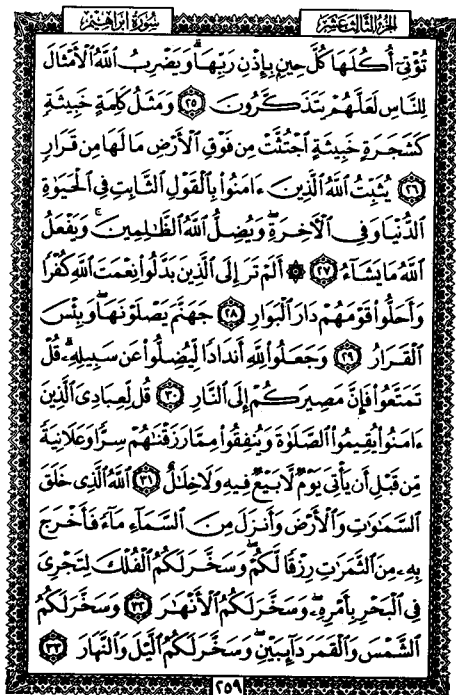 سُورَةُ إبراهيم
الجزء الثالث عشر
تُؤْتِىٓ أُكُلَهَا كُلَّ حِينٍۭ بِإِذْنِ رَبِّهَاۗ وَيَضْرِبُ ٱللَّهُ ٱلْأَمْثَالَ
لِلنَّاسِ لَعَلَّهُمْ يَتَذَكَّرُونَ ٢٥ وَمَثَلُ كَلِمَةٍ خَبِيثَةٍ
كَشَجَرَةٍ خَبِيثَةٍ ٱجْتُثَّتْ مِن فَوْقِ ٱلْأَرْضِ مَا لَهَا مِن قَرَارٍ
٢٦ يُثَبِّتُ ٱللَّهُ ٱلَّذِينَ ءَامَنُوا۟ بِٱلْقَوْلِ ٱلثَّابِتِ فِى ٱلْحَيَوٰةِ
ٱلدُّنْيَا وَفِى ٱلْءَاخِرَةِۖ وَيُضِلُّ ٱللَّهُ ٱلظَّٰلِمِينَۚ وَيَفْعَلُ
ٱللَّهُ مَا يَشَآءُ ٢٧ ۞ أَلَمْ تَرَ إِلَى ٱلَّذِينَ بَدَّلُوا۟ نِعْمَتَ ٱللَّهِ كُفْرًا
وَأَحَلُّوا۟ قَوْمَهُمْ دَارَ ٱلْبَوَارِ ٢٨ جَهَنَّمَ يَصْلَوْنَهَاۖ وَبِئْسَ
ٱلْقَرَارُ ٢٩ وَجَعَلُوا۟ لِلَّهِ أَندَادًا لِّيُضِلُّوا۟ عَن سَبِيلِهِۦۗ قُلْ
تَمَتَّعُوا۟ فَإِنَّ مَصِيرَكُمْ إِلَى ٱلنَّارِ ٣٠ قُل لِّعِبَادِىَ ٱلَّذِينَ
ءَامَنُوا۟ يُقِيمُوا۟ ٱلصَّلَوٰةَ وَيُنفِقُوا۟ مِمَّا رَزَقْنَٰهُمْ سِرًّا وَعَلَانِيَةً
مِّن قَبْلِ أَن يَأْتِىَ يَوْمٌ لَّا بَيْعٌ فِيهِ وَلَا خِلَٰلٌ ٣١ ٱللَّهُ ٱلَّذِى خَلَقَ
ٱلسَّمَٰوَٰتِ وَٱلْأَرْضَ وَأَنزَلَ مِنَ ٱلسَّمَآءِ مَآءً فَأَخْرَجَ
بِهِۦ مِنَ ٱلثَّمَرَٰتِ رِزْقًا لَّكُمْۖ وَسَخَّرَ لَكُمُ ٱلْفُلْكَ لِتَجْرِىَ
فِى ٱلْبَحْرِ بِأَمْرِهِۦۖ وَسَخَّرَ لَكُمُ ٱلْأَنْهَٰرَ ٣٢ وَسَخَّرَ لَكُمُ
ٱلشَّمْسَ وَٱلْقَمَرَ دَآئِبَيْنِۖ وَسَخَّرَ لَكُمُ ٱلَّيْلَ وَٱلنَّهَارَ ٣٣
٢٥٩